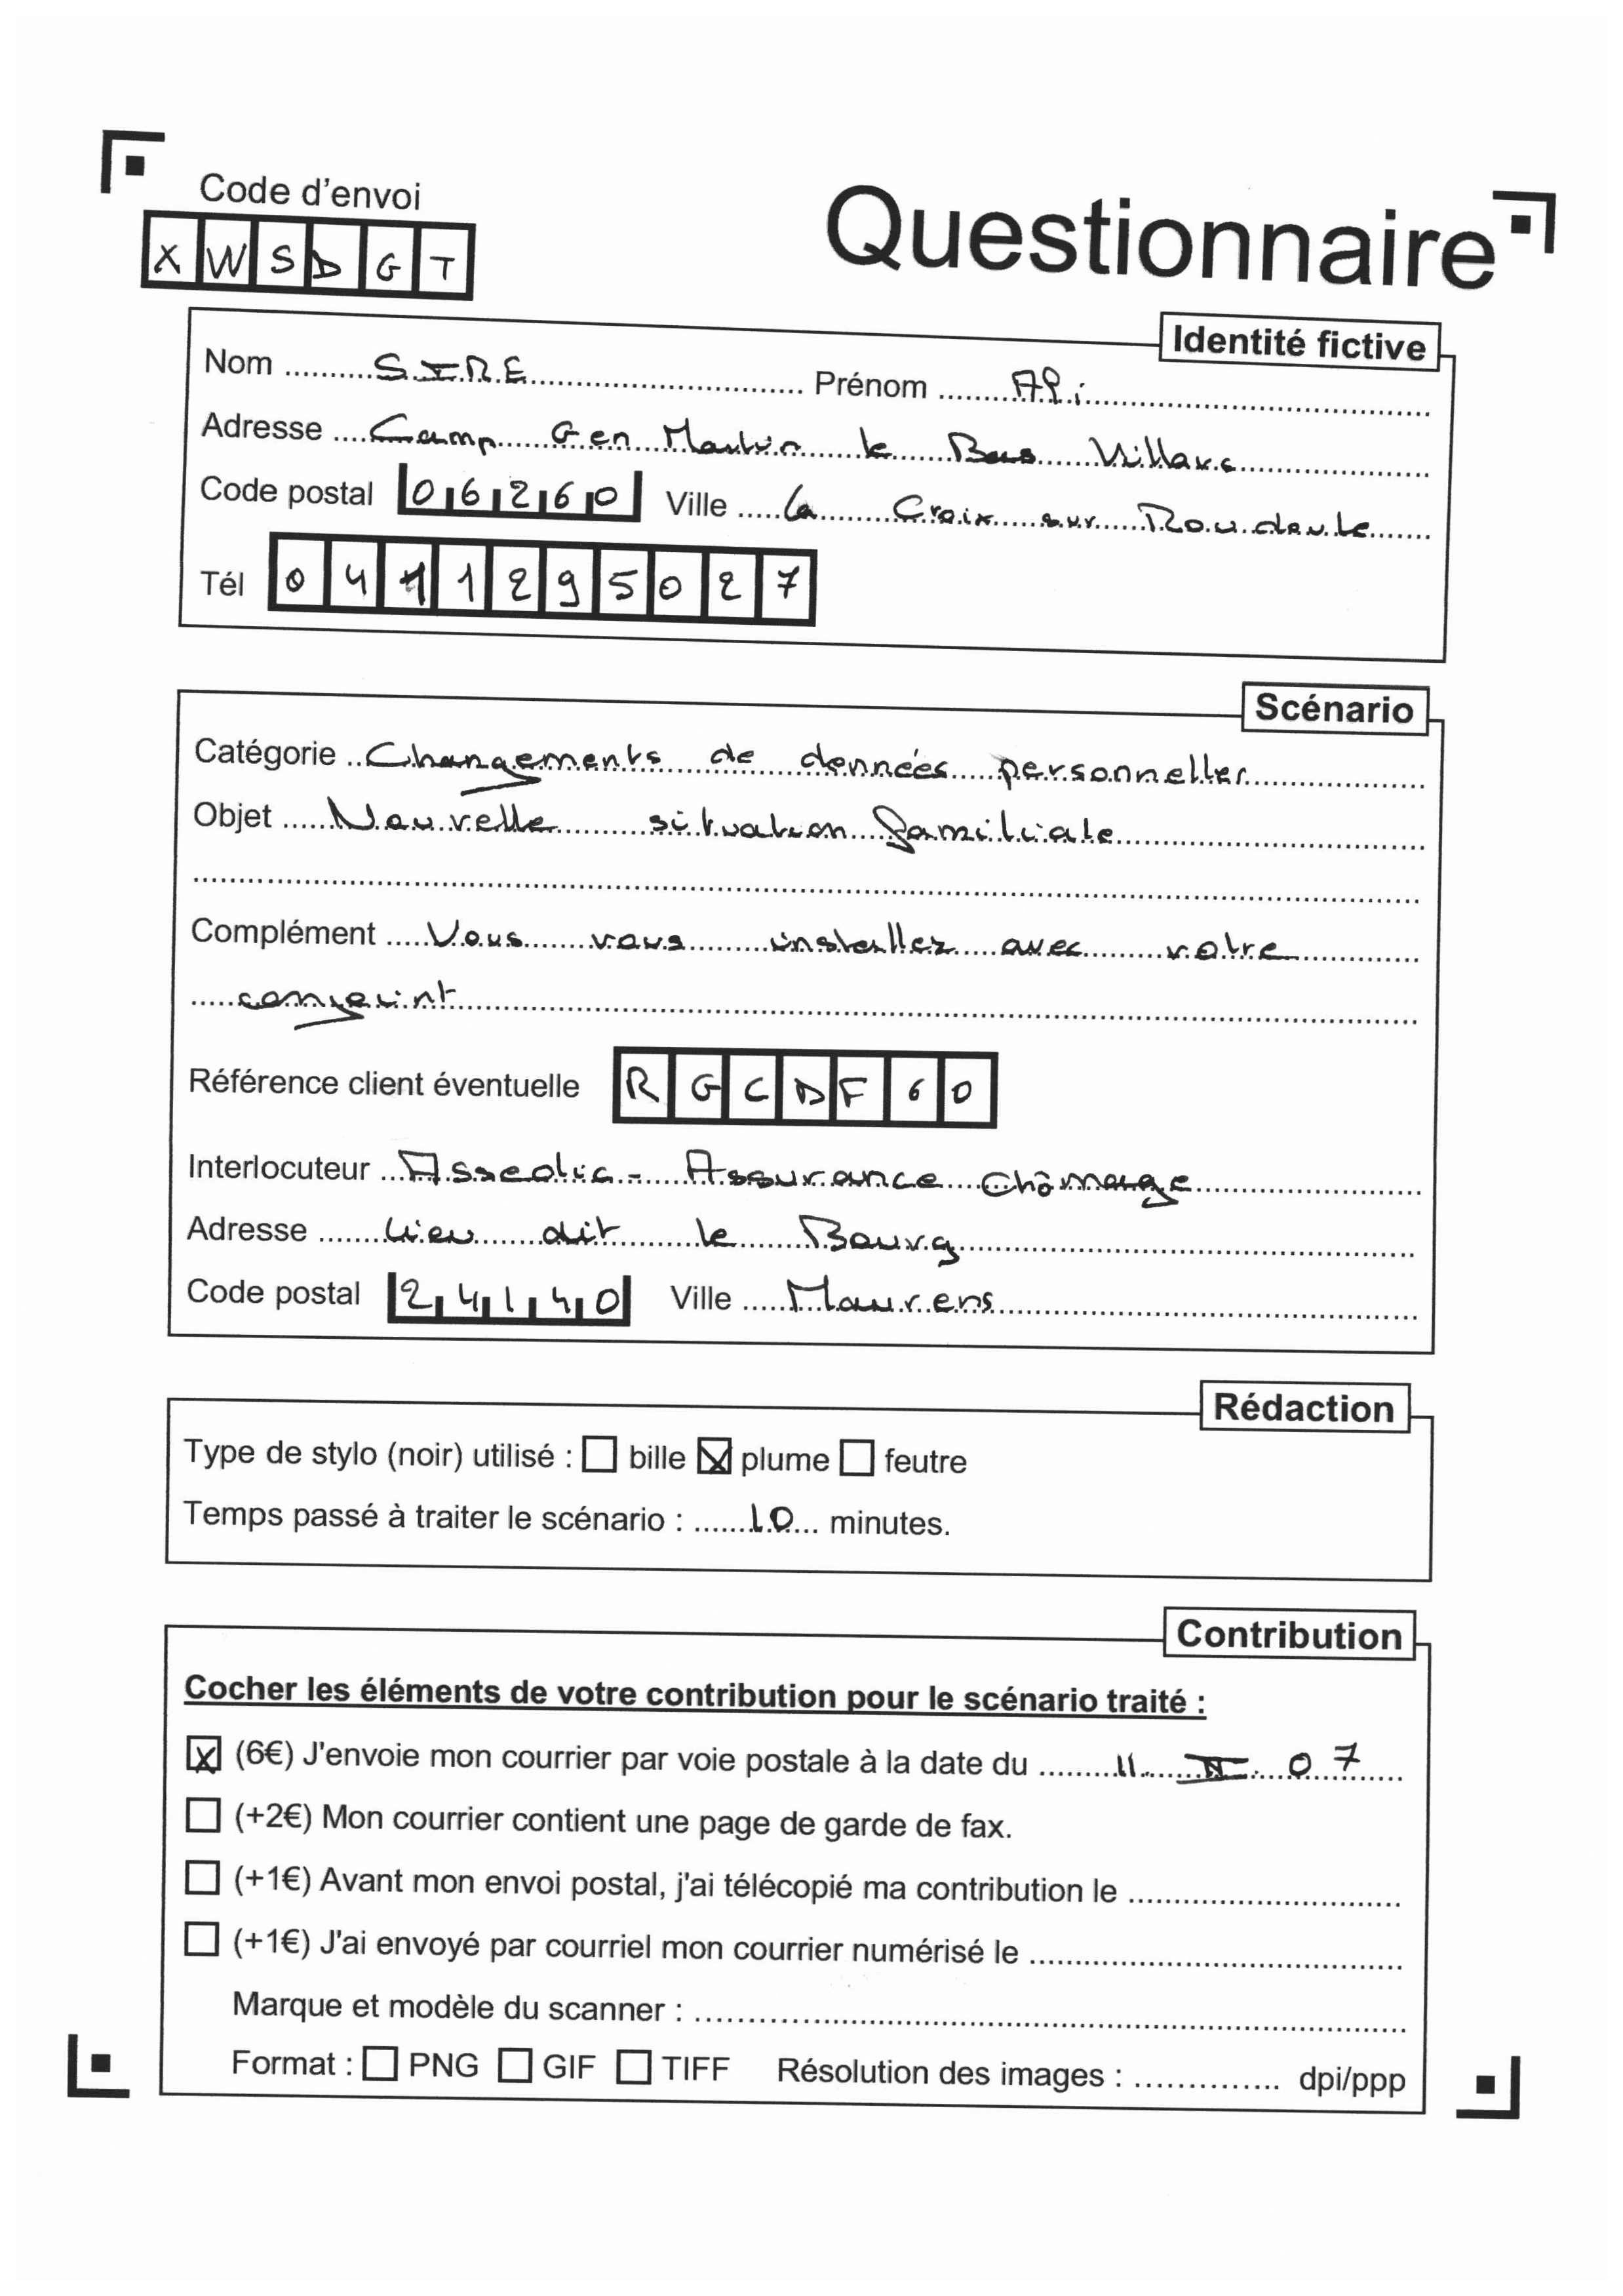 Code d'envoi
XWSDGT
Questionnaire
Identité fictive
Nom SIRE Prénom Api
Adresse Camp Gen Martin le Bas Villars
Code postal 06260 Ville La Croix sur Roudoule
Tél 0411295027
Scénario
Catégorie Changements de données personnelles
Objet Nouvelle situation familiale
Complément Vous vous installez avec votre
conjoint
Référence client éventuelle RGCDF60
Interlocuteur Assedic - Assurance Chômage
Adresse Lieu dit le Bourg
Code postal 24140 Ville Maurens
Rédaction
Type de stylo (noir) utilisé : bille plume feutre
Temps passé à traiter le scénario : 10 minutes.
Contribution
Cocher les éléments de votre contribution pour le scénario traité :
(6€) J'envoie mon courrier par voie postale à la date du 11. 07
(+2€) Mon courrier contient une page de garde de fax.
(+1€) Avant mon envoi postal, j'ai télécopié ma contribution le
(+1€) J'ai envoyé par courriel mon courrier numérisé le
Marque et modèle du scanner :
Format : PNG GIF TIFF Résolution des images : dpi/ppp